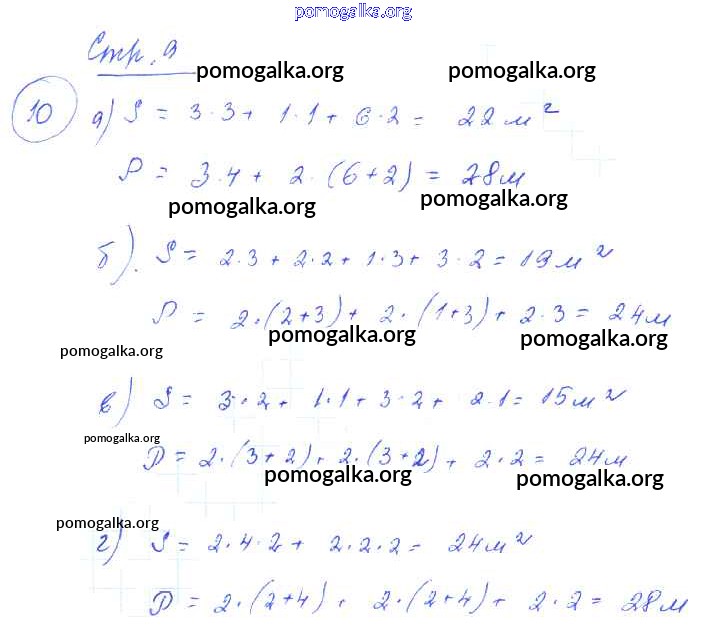 pomogalka.org
Стр. 9
pomogalka.org pomogalka.org
10 а) S = 3·3 + 1·1 + 6·2 = 22 м²
P = 3·4 + 2·(6+2) = 28м
pomogalka.org pomogalka.org
б). S = 2·3 + 2·2 + 1·3 + 3·2 = 19 м²
P = 2·(2+3) + 2·(1+3) + 2·3 = 24м
pomogalka.org pomogalka.org
pomogalka.org
в) S = 3·2 + 1·1 + 3·2 + 2·1 = 15м²
pomogalka.org
P = 2·(3+2) + 2·(3+2) + 2·2 = 24м
pomogalka.org pomogalka.org
pomogalka.org
г) S = 2·4·2 + 2·2·2 = 24м²
P = 2·(2+4) + 2·(2+4) + 2·2 = 28м